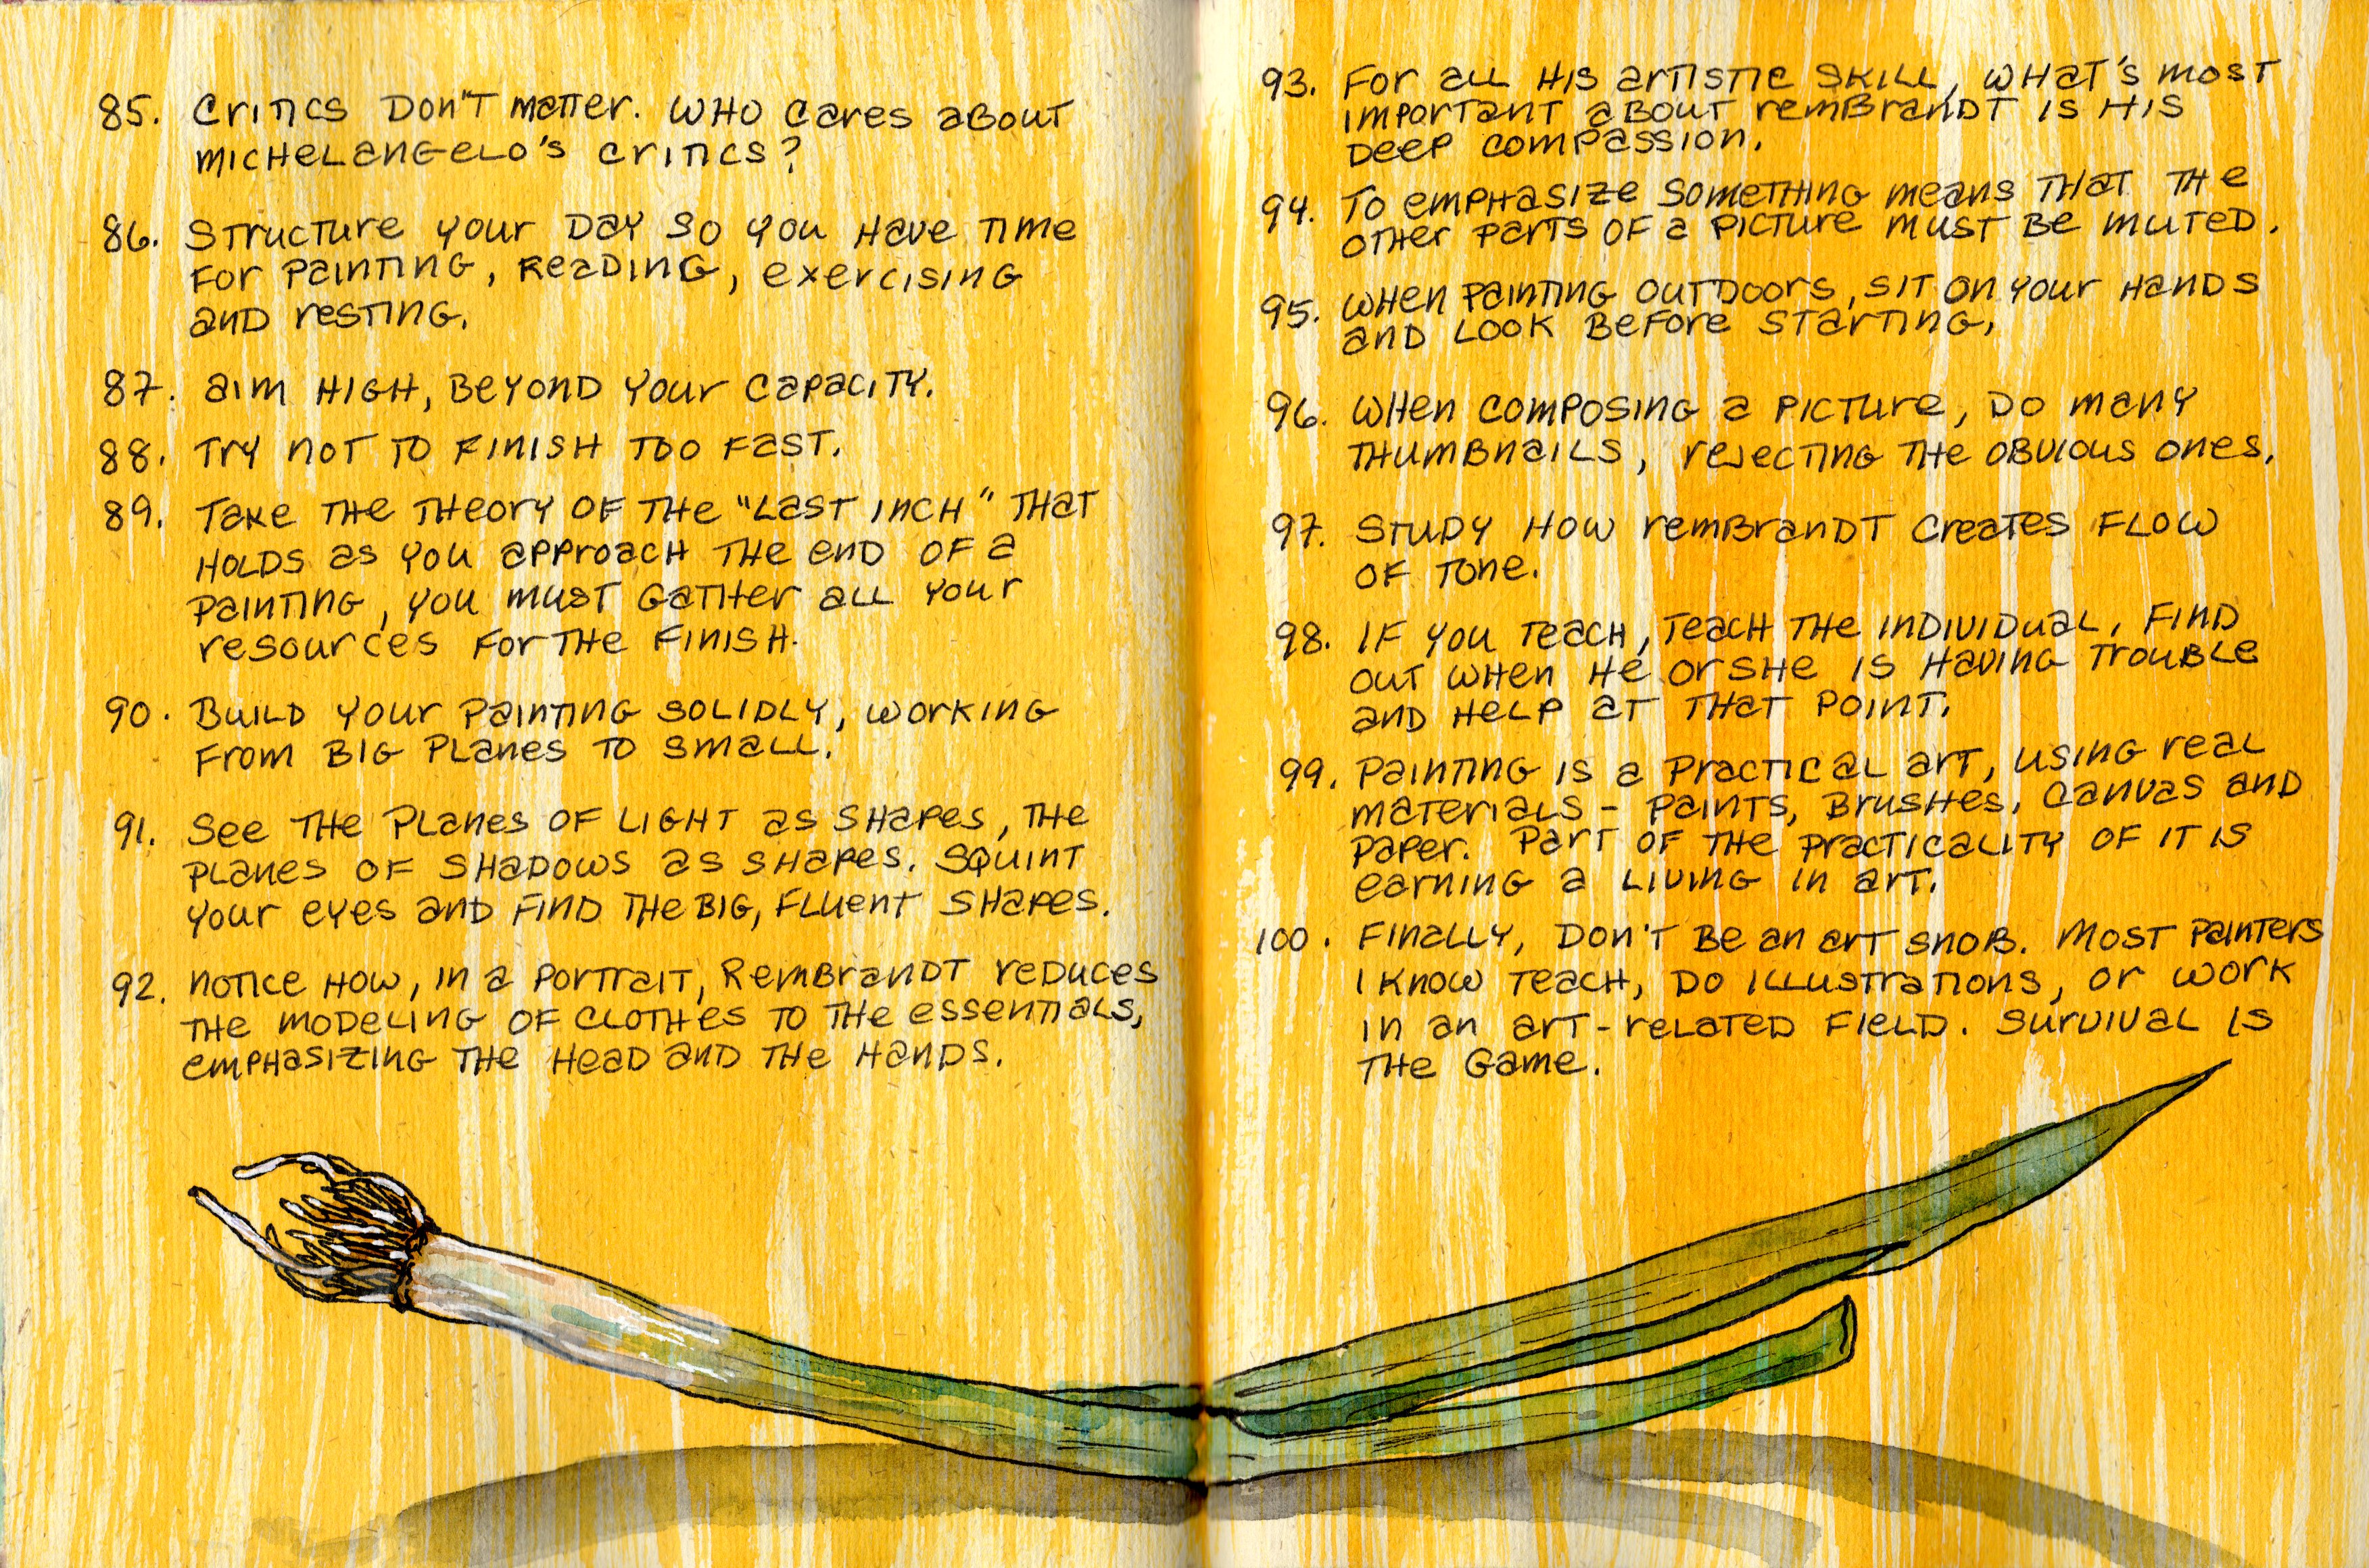 85. Critics don't matter. Who cares about
Michelangelo's critics?
86. Structure your day so you have time
for painting, reading, exercising
and resting.
87. Aim high, beyond your capacity.
88. Try not to finish too fast.
89. Take the theory of the "last inch" that
holds as you approach the end of a
painting, you must gather all your
resources for the finish.
90. Build your painting solidly, working
from big planes to small.
91. See the planes of light as shapes, the
planes of shadows as shapes. Squint
your eyes and find the big, fluent shapes.
92. Notice how, in a portrait, Rembrandt reduces
the modeling of clothes to the essentials,
emphasizing the head and the hands.
93. For all his artistic skill, what's most
important about Rembrandt is his
deep compassion.
94. To emphasize something means that the
other parts of a picture must be muted.
95. When painting outdoors, sit on your hands
and look before starting.
96. When composing a picture, do many
thumbnails, rejecting the obvious ones.
97. Study how Rembrandt creates flow
of tone.
98. If you teach, teach the individual. Find
out when he or she is having trouble
and help at that point.
99. Painting is a practical art, using real
materials – paints, brushes, canvas and
paper. Part of the practicality of it is
earning a living in art.
100. Finally, don't be an art snob. Most painters
I know teach, do illustrations, or work
in an art-related field. Survival is
the game.